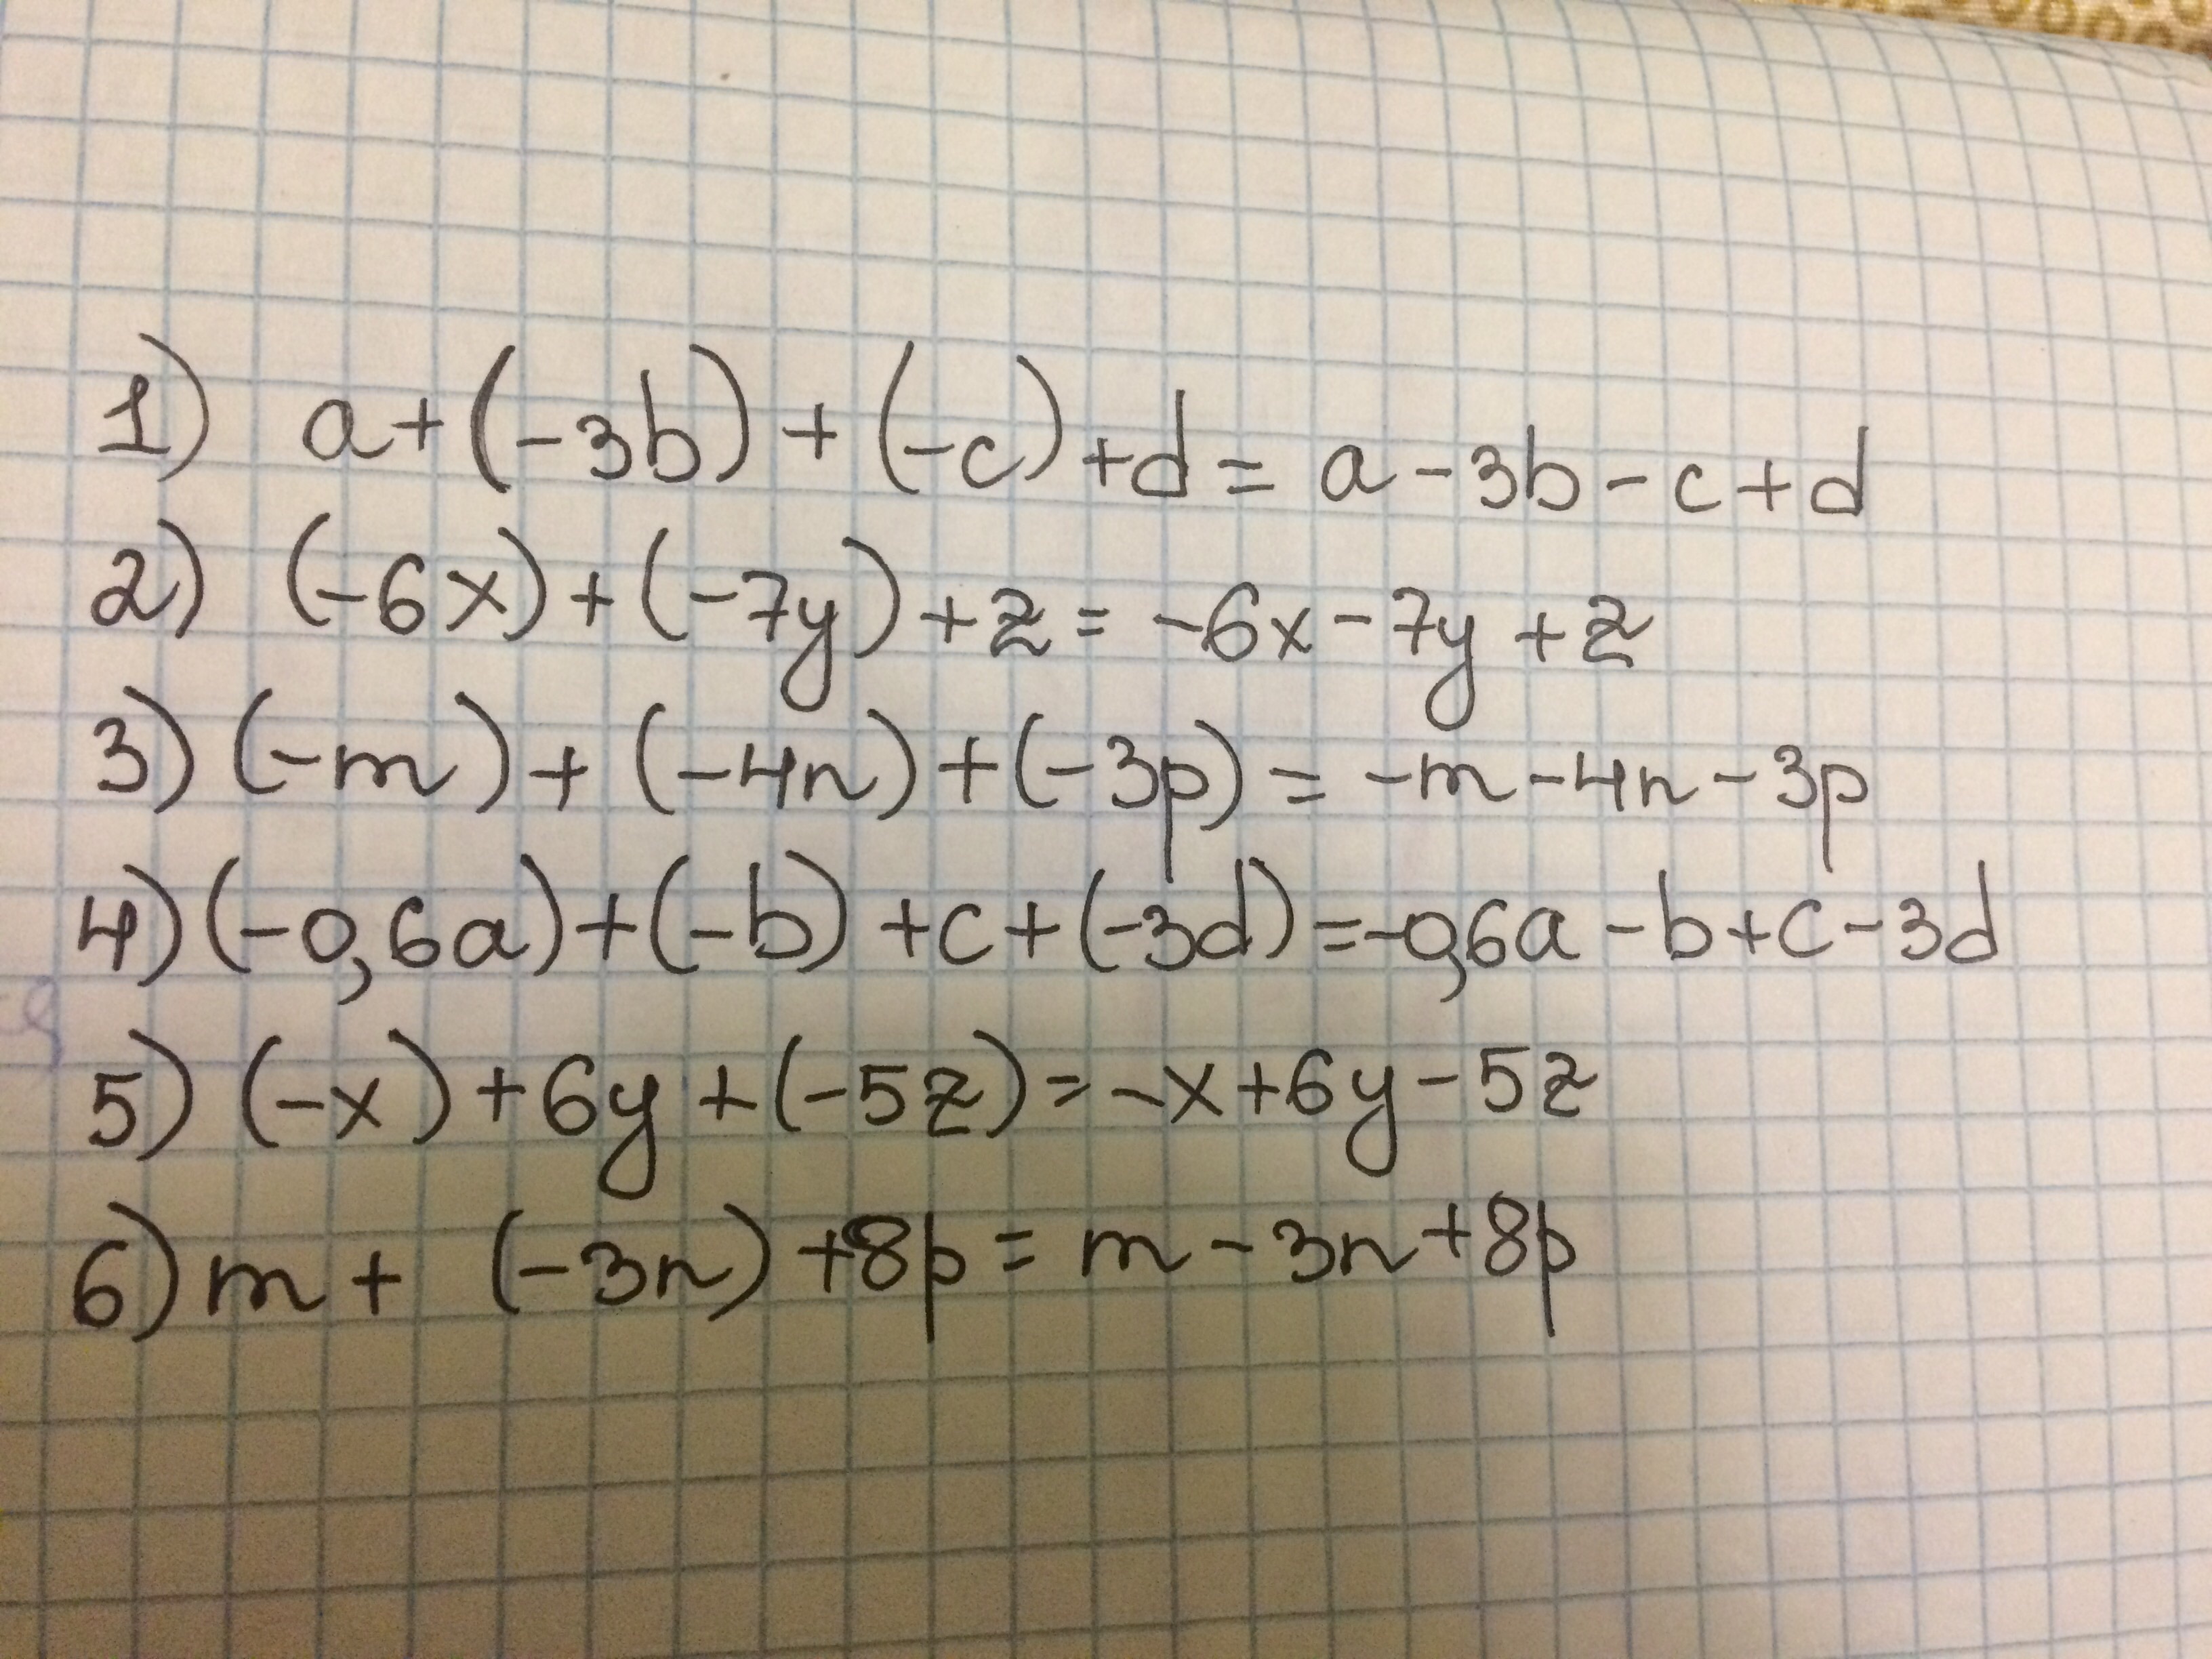 1) a+(-3b)+(-c)+d= a-3b-c+d
2) (-6x)+(-7y)+z= -6x-7y+z
3) (-m)+(-4n)+(-3p)= -m-4n-3p
4) (-0,6a)+(-b)+c+(-3d)=-0,6a-b+c-3d
5) (-x)+6y+(-5z)=-x+6y-5z
6) m+ (-3n)+8p= m-3n+8p